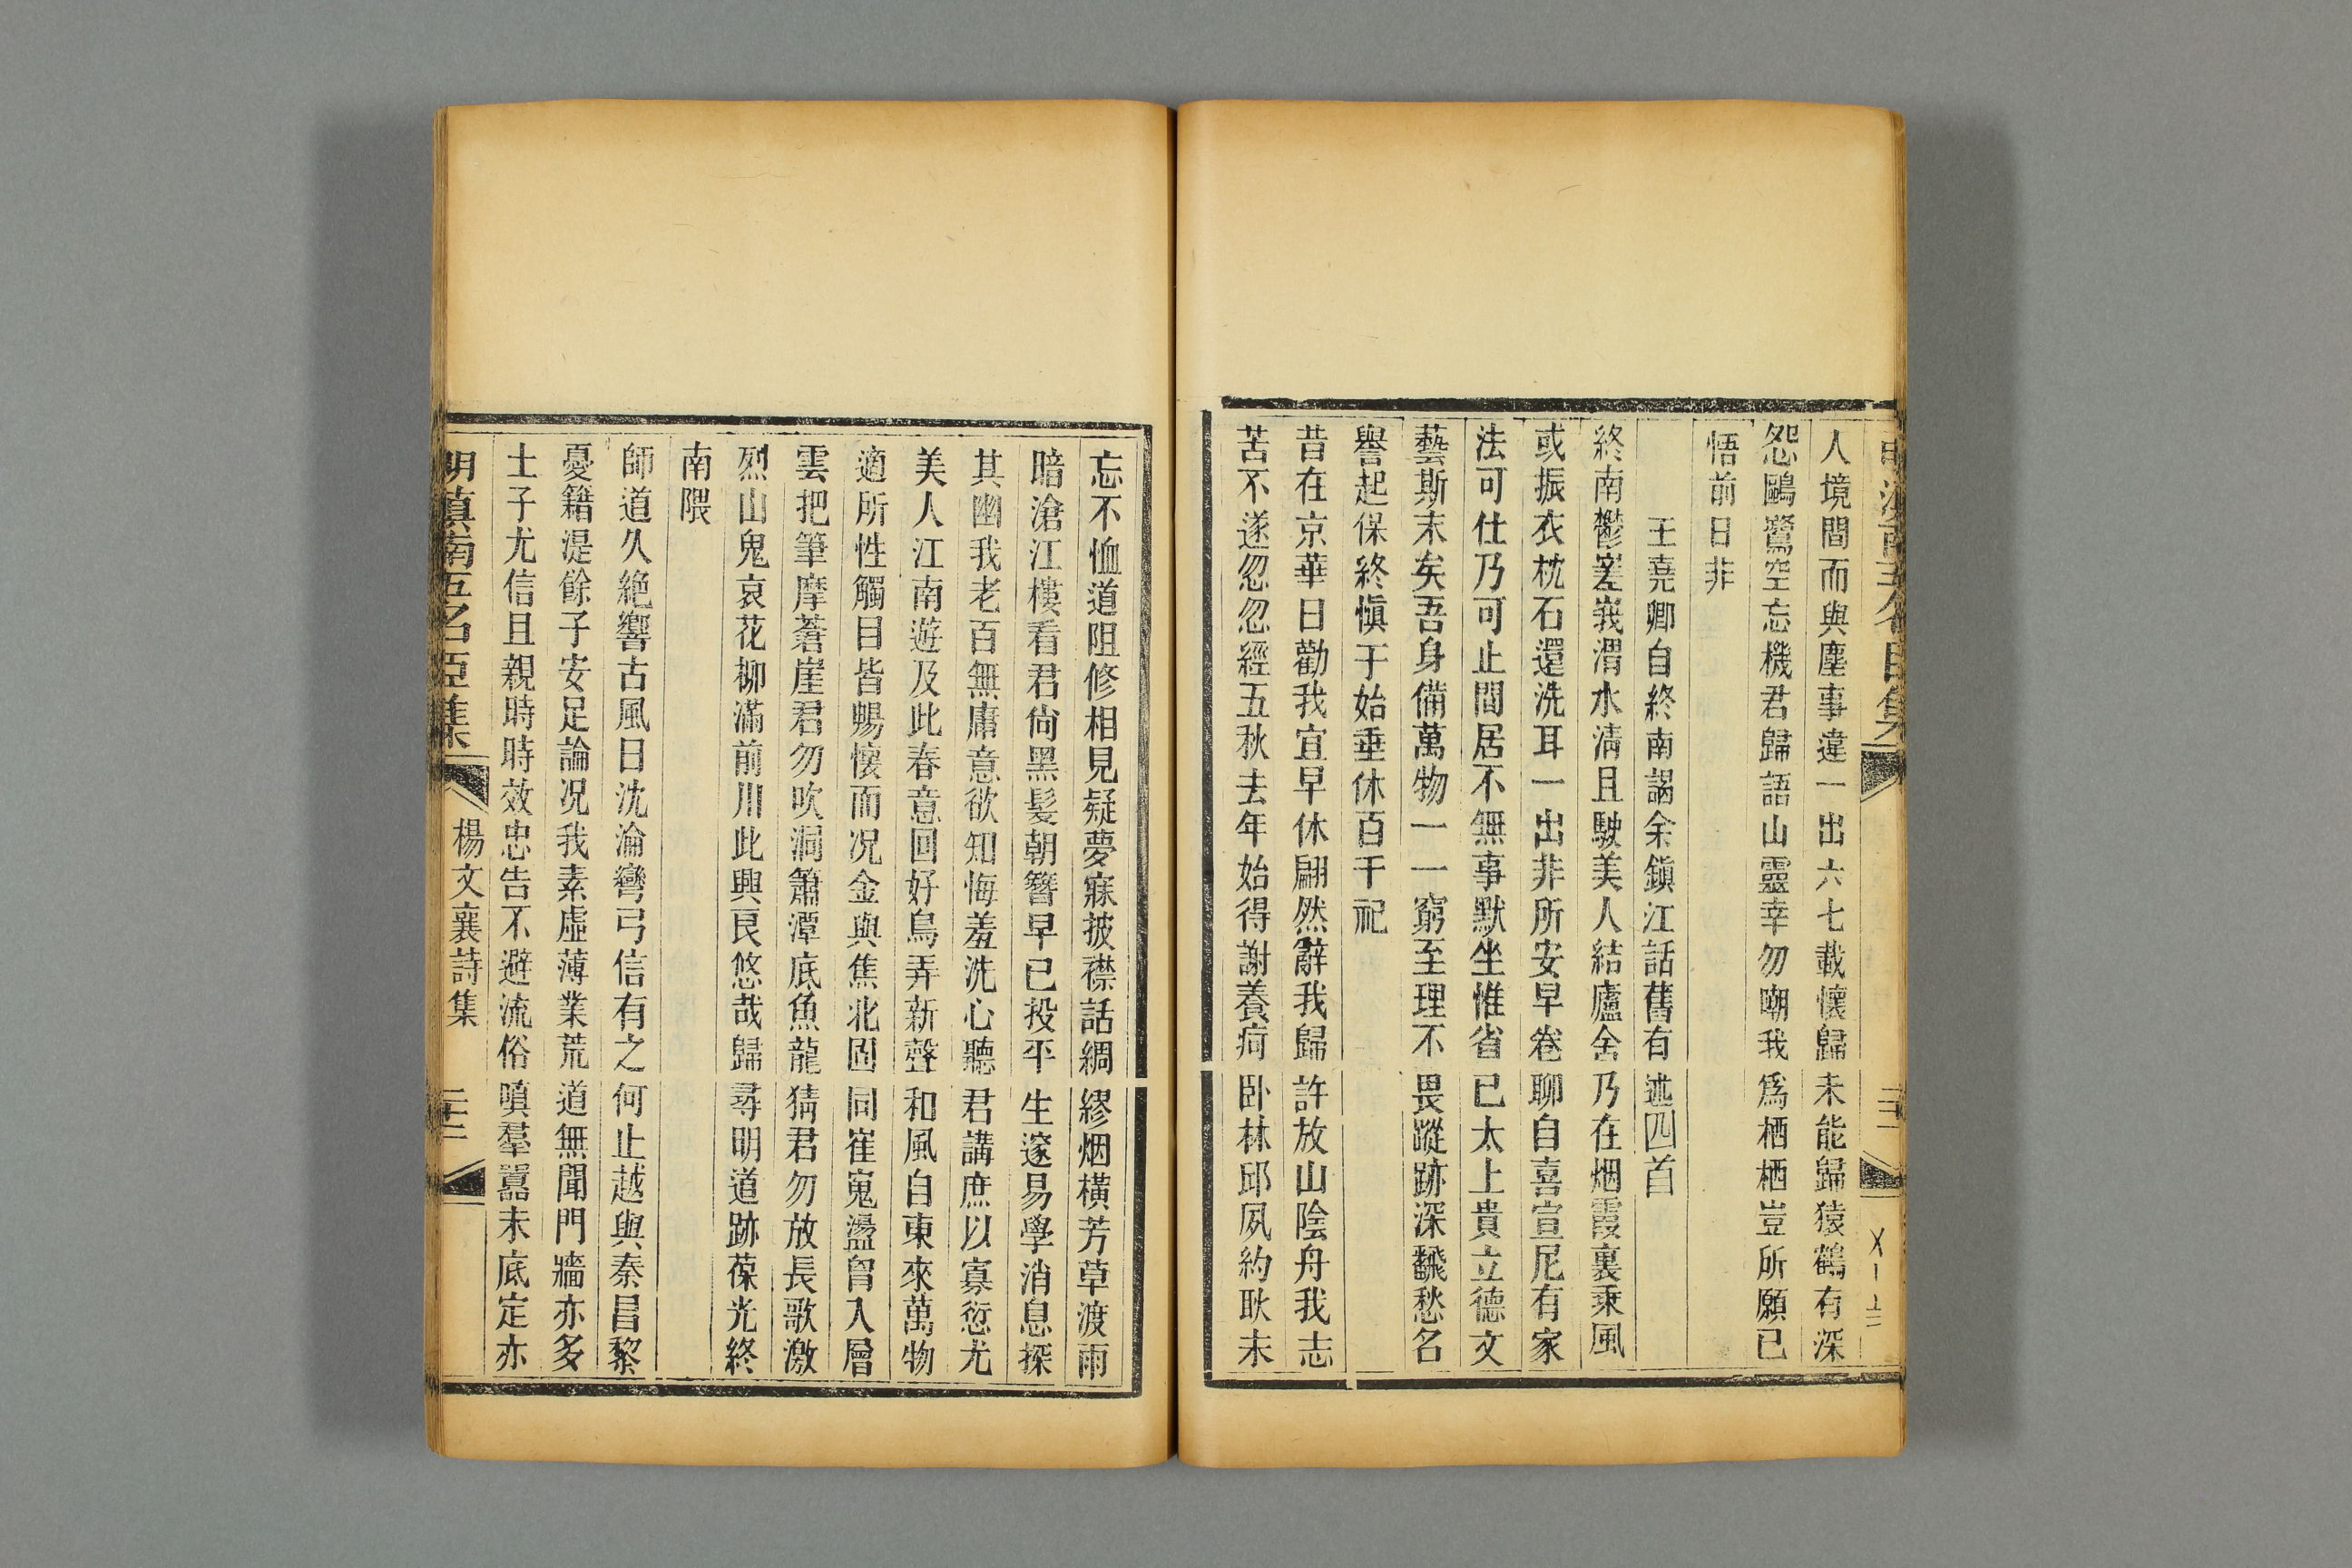 人境間而與塵事違一出六七載懷歸未能歸猿鶴有深
怨鷗鷺空忘機君歸語山靈幸勿嘲我爲栖栖豈所願已
悟前日非
王堯卿自終南謁余鎭江話舊有述四首
終南鬱嵳峩渭水清且駛美人結廬舍乃在烟霞裏乘風
或振衣枕石還洗耳一出非所安早卷聊自喜宣尼有家
法可仕乃可止間居不無事默坐惟省已太上貴立德文
藝斯末矣吾身備萬物一一窮至理不畏蹤跡深翻愁名
譽起保終愼于始垂休百千祀
昔在京華日勸我宜早休翩然辭我歸許放山陰舟我志
苦不遂忽忽經五秋去年始得謝養疴卧林邱夙約耿未
忘不恤道阻修相見疑夢寐披襟話綢繆烟橫芳草渡雨
暗滄江樓看君尙黑髮朝簪早已投平生邃易學消息探
其幽我老百無庸意欲知悔羞洗心聽君講庶以寡愆尤
美人江南遊及此春意回好鳥弄新聲和風自東來萬物
適所性觸目皆暢懷而况金與焦北固同崔嵬盪胷入層
雲把筆摩蒼崖君勿吹洞簫潭底魚龍猜君勿放長歌激
烈山鬼哀花柳滿前川此興良悠哉歸尋明道跡葆光終
南隈
師道久絶響古風日沈淪彎弓信有之何止越與秦昌黎
憂籍湜餘子安足論况我素虛薄業荒道無聞門牆亦多
士子尤信且親時時效忠告不避流俗嗔羣嚚未底定亦
明滇南五名臣集 楊文襄詩集